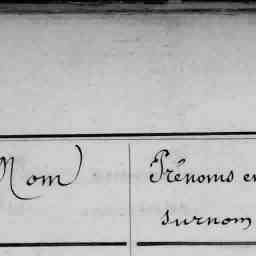 Nom
Prénoms et
surnom